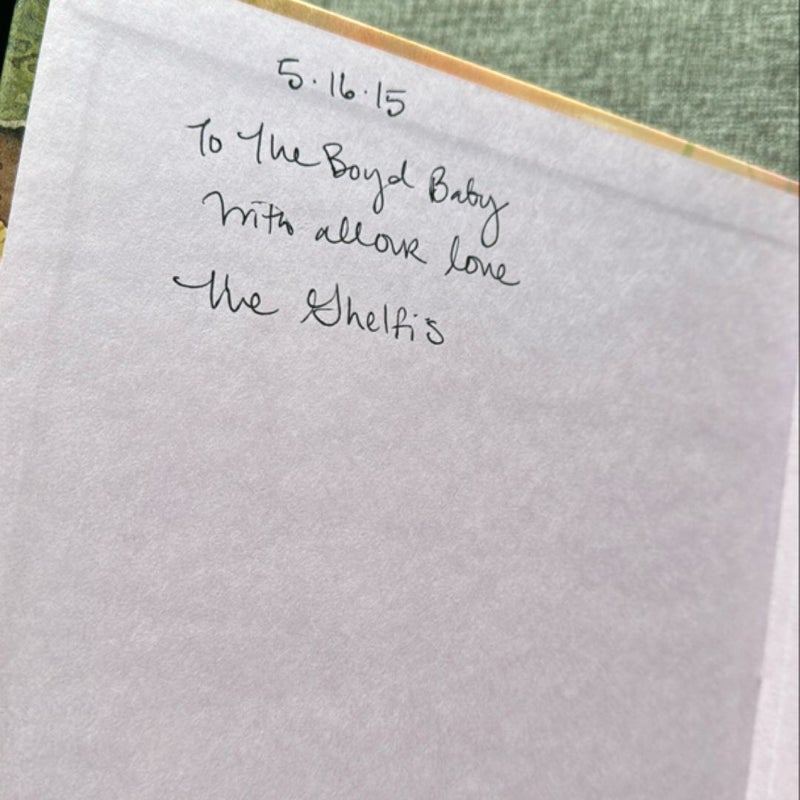 5.16.15
To The Boyd Baby
With all our love
The Ghelfis